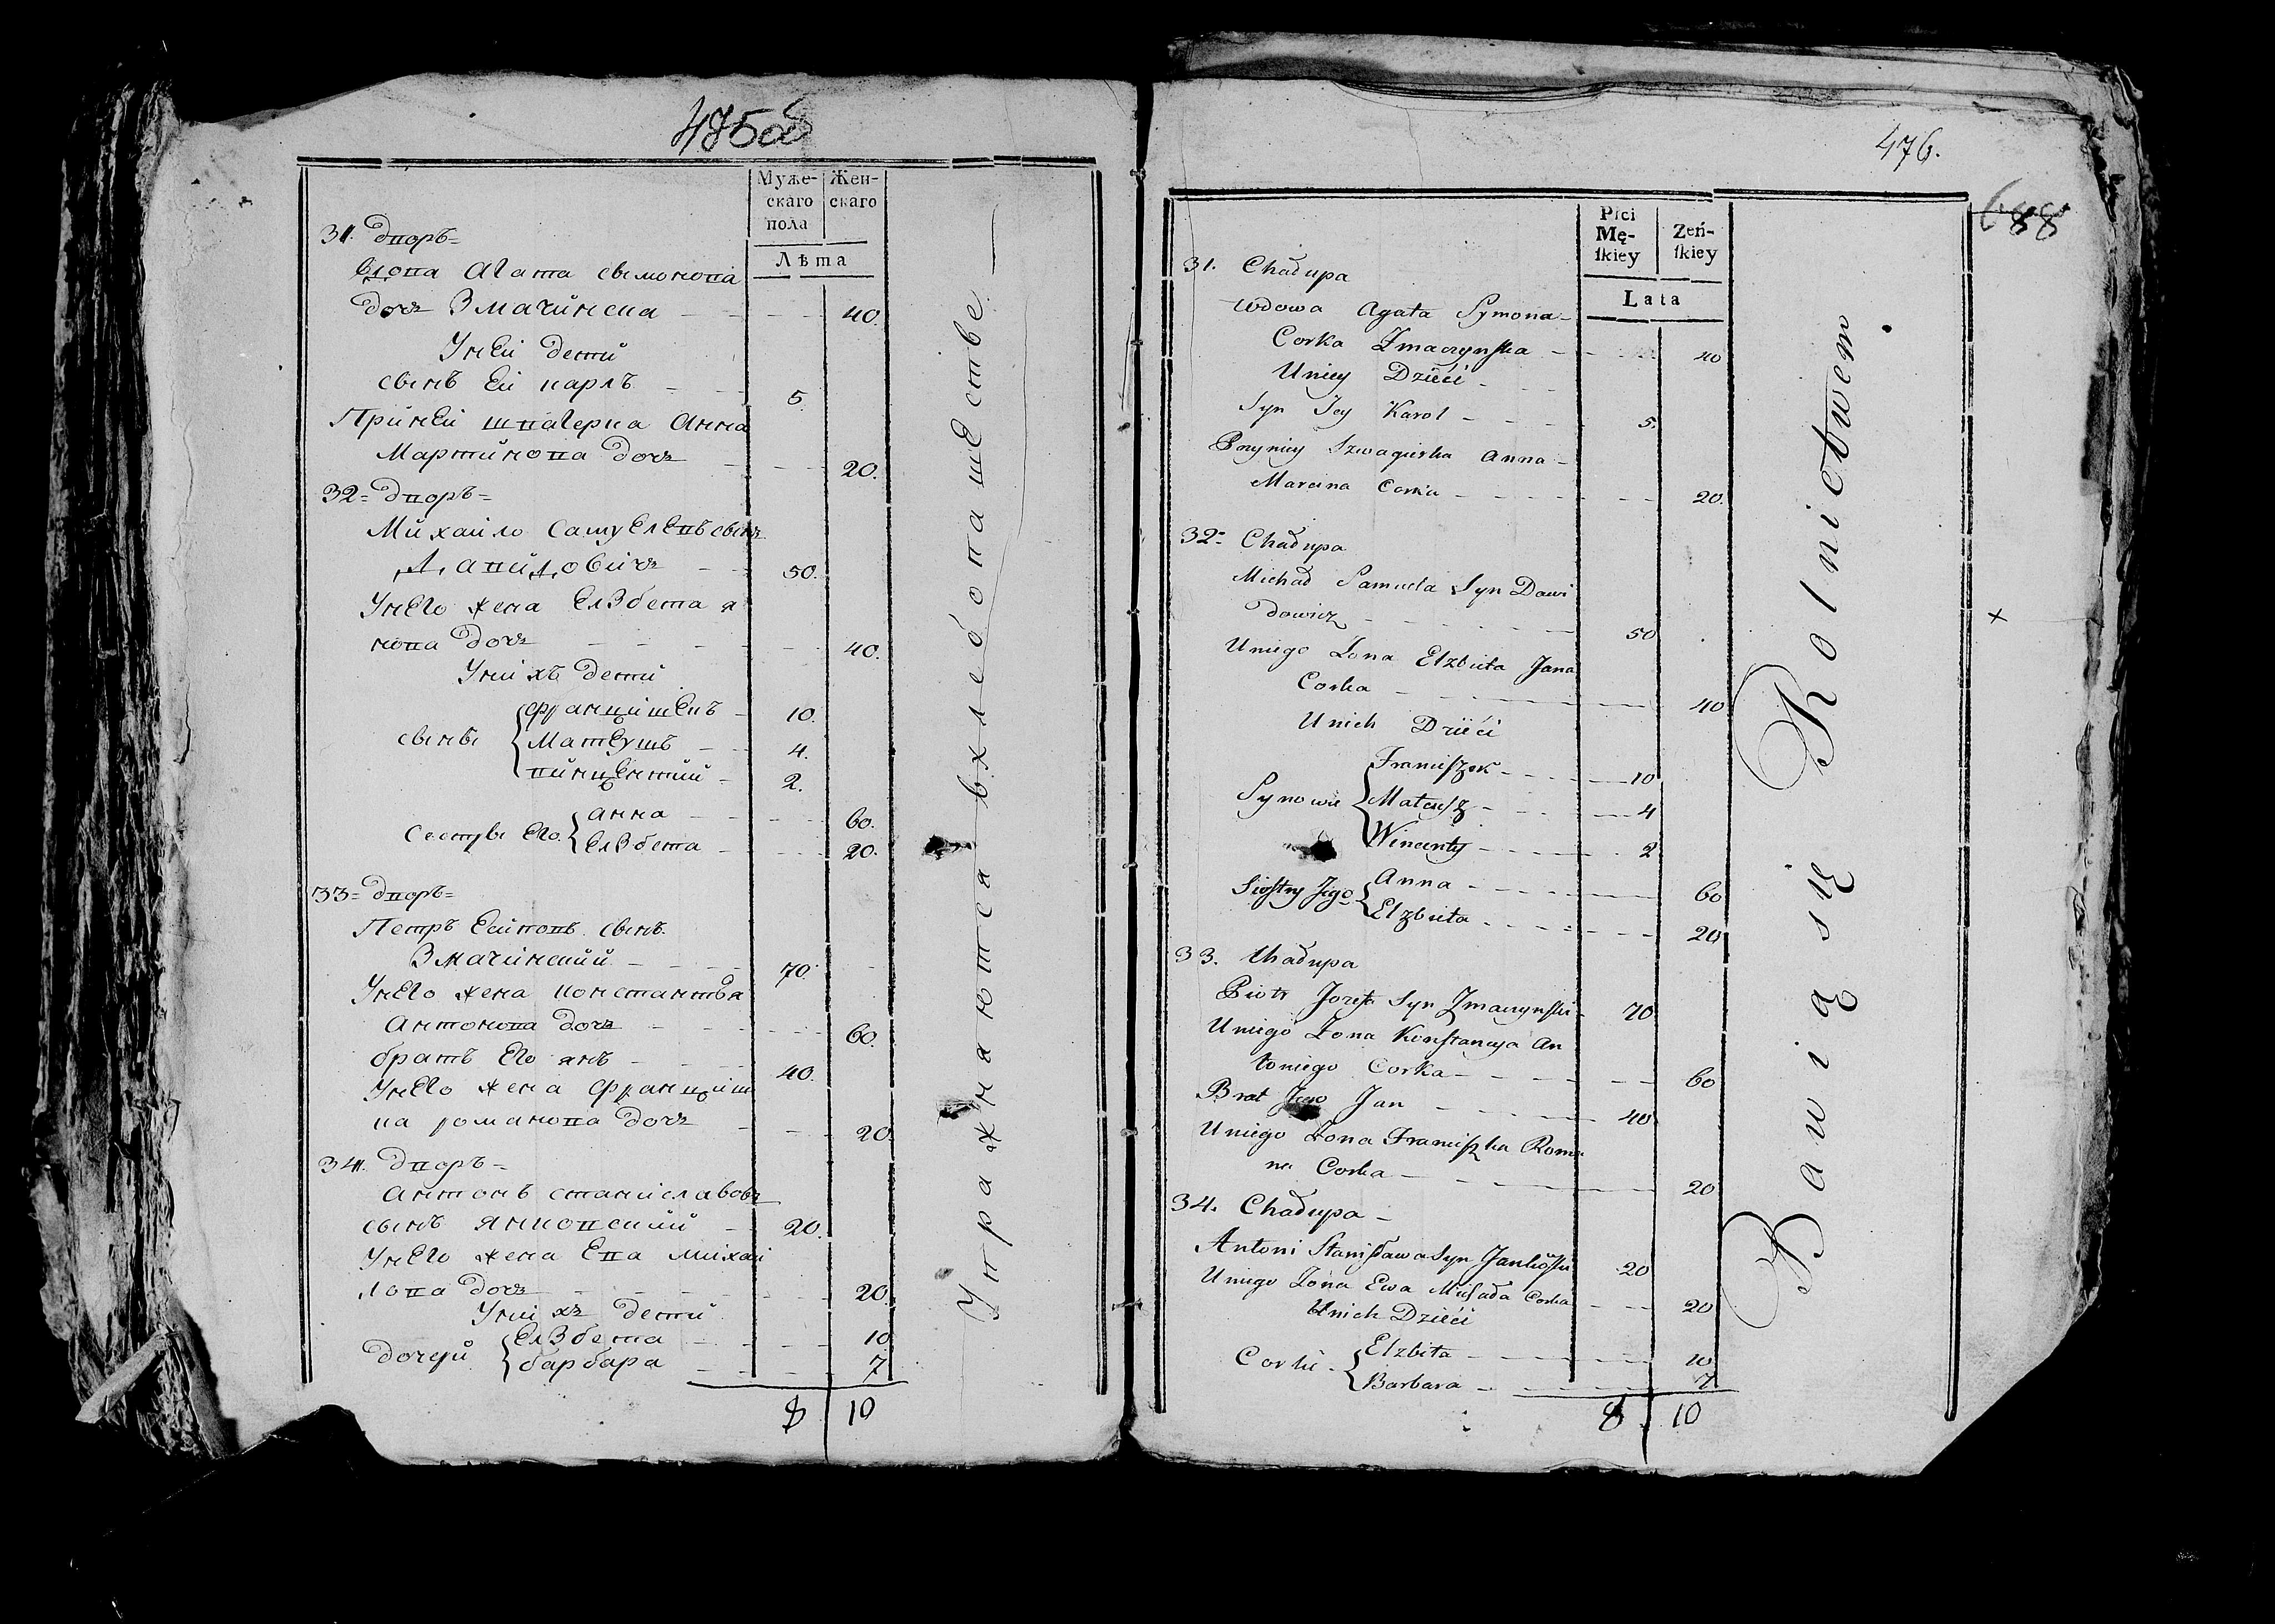 475об
Муже-
скаго
пола
Жен-
скаго
Лѣта
31. дворъ=
вдова Агата сымонова
дочь Змачинска - - - 40.
Унеи дети
сынъ еи карлъ - - 5.
Принеи швагерка Анна
Мартинова дочь - - - 20.
32= дворъ=
Михаило самуелевъ сынъ
Давидовичъ - - 50.
Унего жена Елзбета я
нова дочь - - - 40.
Унихъ дети
сыны
францишекъ - 10.
Матеушъ - - 4.
винцентий - 2.
Сестры его
анна - - - 60.
Елзбета - - - 20.
33= дворъ=
Петръ Есиповъ сынъ
Змачинский - - - 70.
Унего жена констанция
Антонова дочь - - - 60.
братъ его янъ - - - 40.
Унего жена францишка
ка романова дочь - - - 20.
34. дворъ=
антонъ станиславовъ
сынъ янковский - 20.
Унего жена Ева михаи
лова дочь - - - 20.
Унихъ дети
дочери
Елзбета - - - 10
барбара - - - 7
8 10
Упражняются в хлебопашестве —
476.
688
Płci
Mę-
skiey
Zeń-
skiey
Lata
31. Chałupa
Wdowa Agata Symona -
Corka Zmaczynska - - - 40
Uniey Dzieci -
Syn Jey Karol - - - 5.
Przyniey Szwagierka Anna -
Marcina Corka - - - 20.
32= Chałupa
Michał Samuela Syn Dawi
dowicz - - - 50
Uniego Zona Elzbieta Jana
Corka - - - 40
Unich Dzieci
Synowie
Franciszek - - - 10
Mateusz - - - 4
Wincenty - - - 2
Siostry Jego
Anna - - - 60
Elzbieta - - - 20
33. Chałupa
Piotr Jozefa Syn Zmaczynski - 70
Uniego Zona Konstancya An
toniego Corka - - - 60
Brat Jego Jan - - - 40
Uniego Zona Franciszka Roma
na Corka - - - 20
34. Chałupa -
Antoni Stanisława Syn Jankowski 20
Uniego Zona Ewa Michała Corka - - - 20
Unich Dzieci
Corki -
Elzbita - - - 10
Barbara - - - 7
8 10
Bawią się Rolnictwem
x